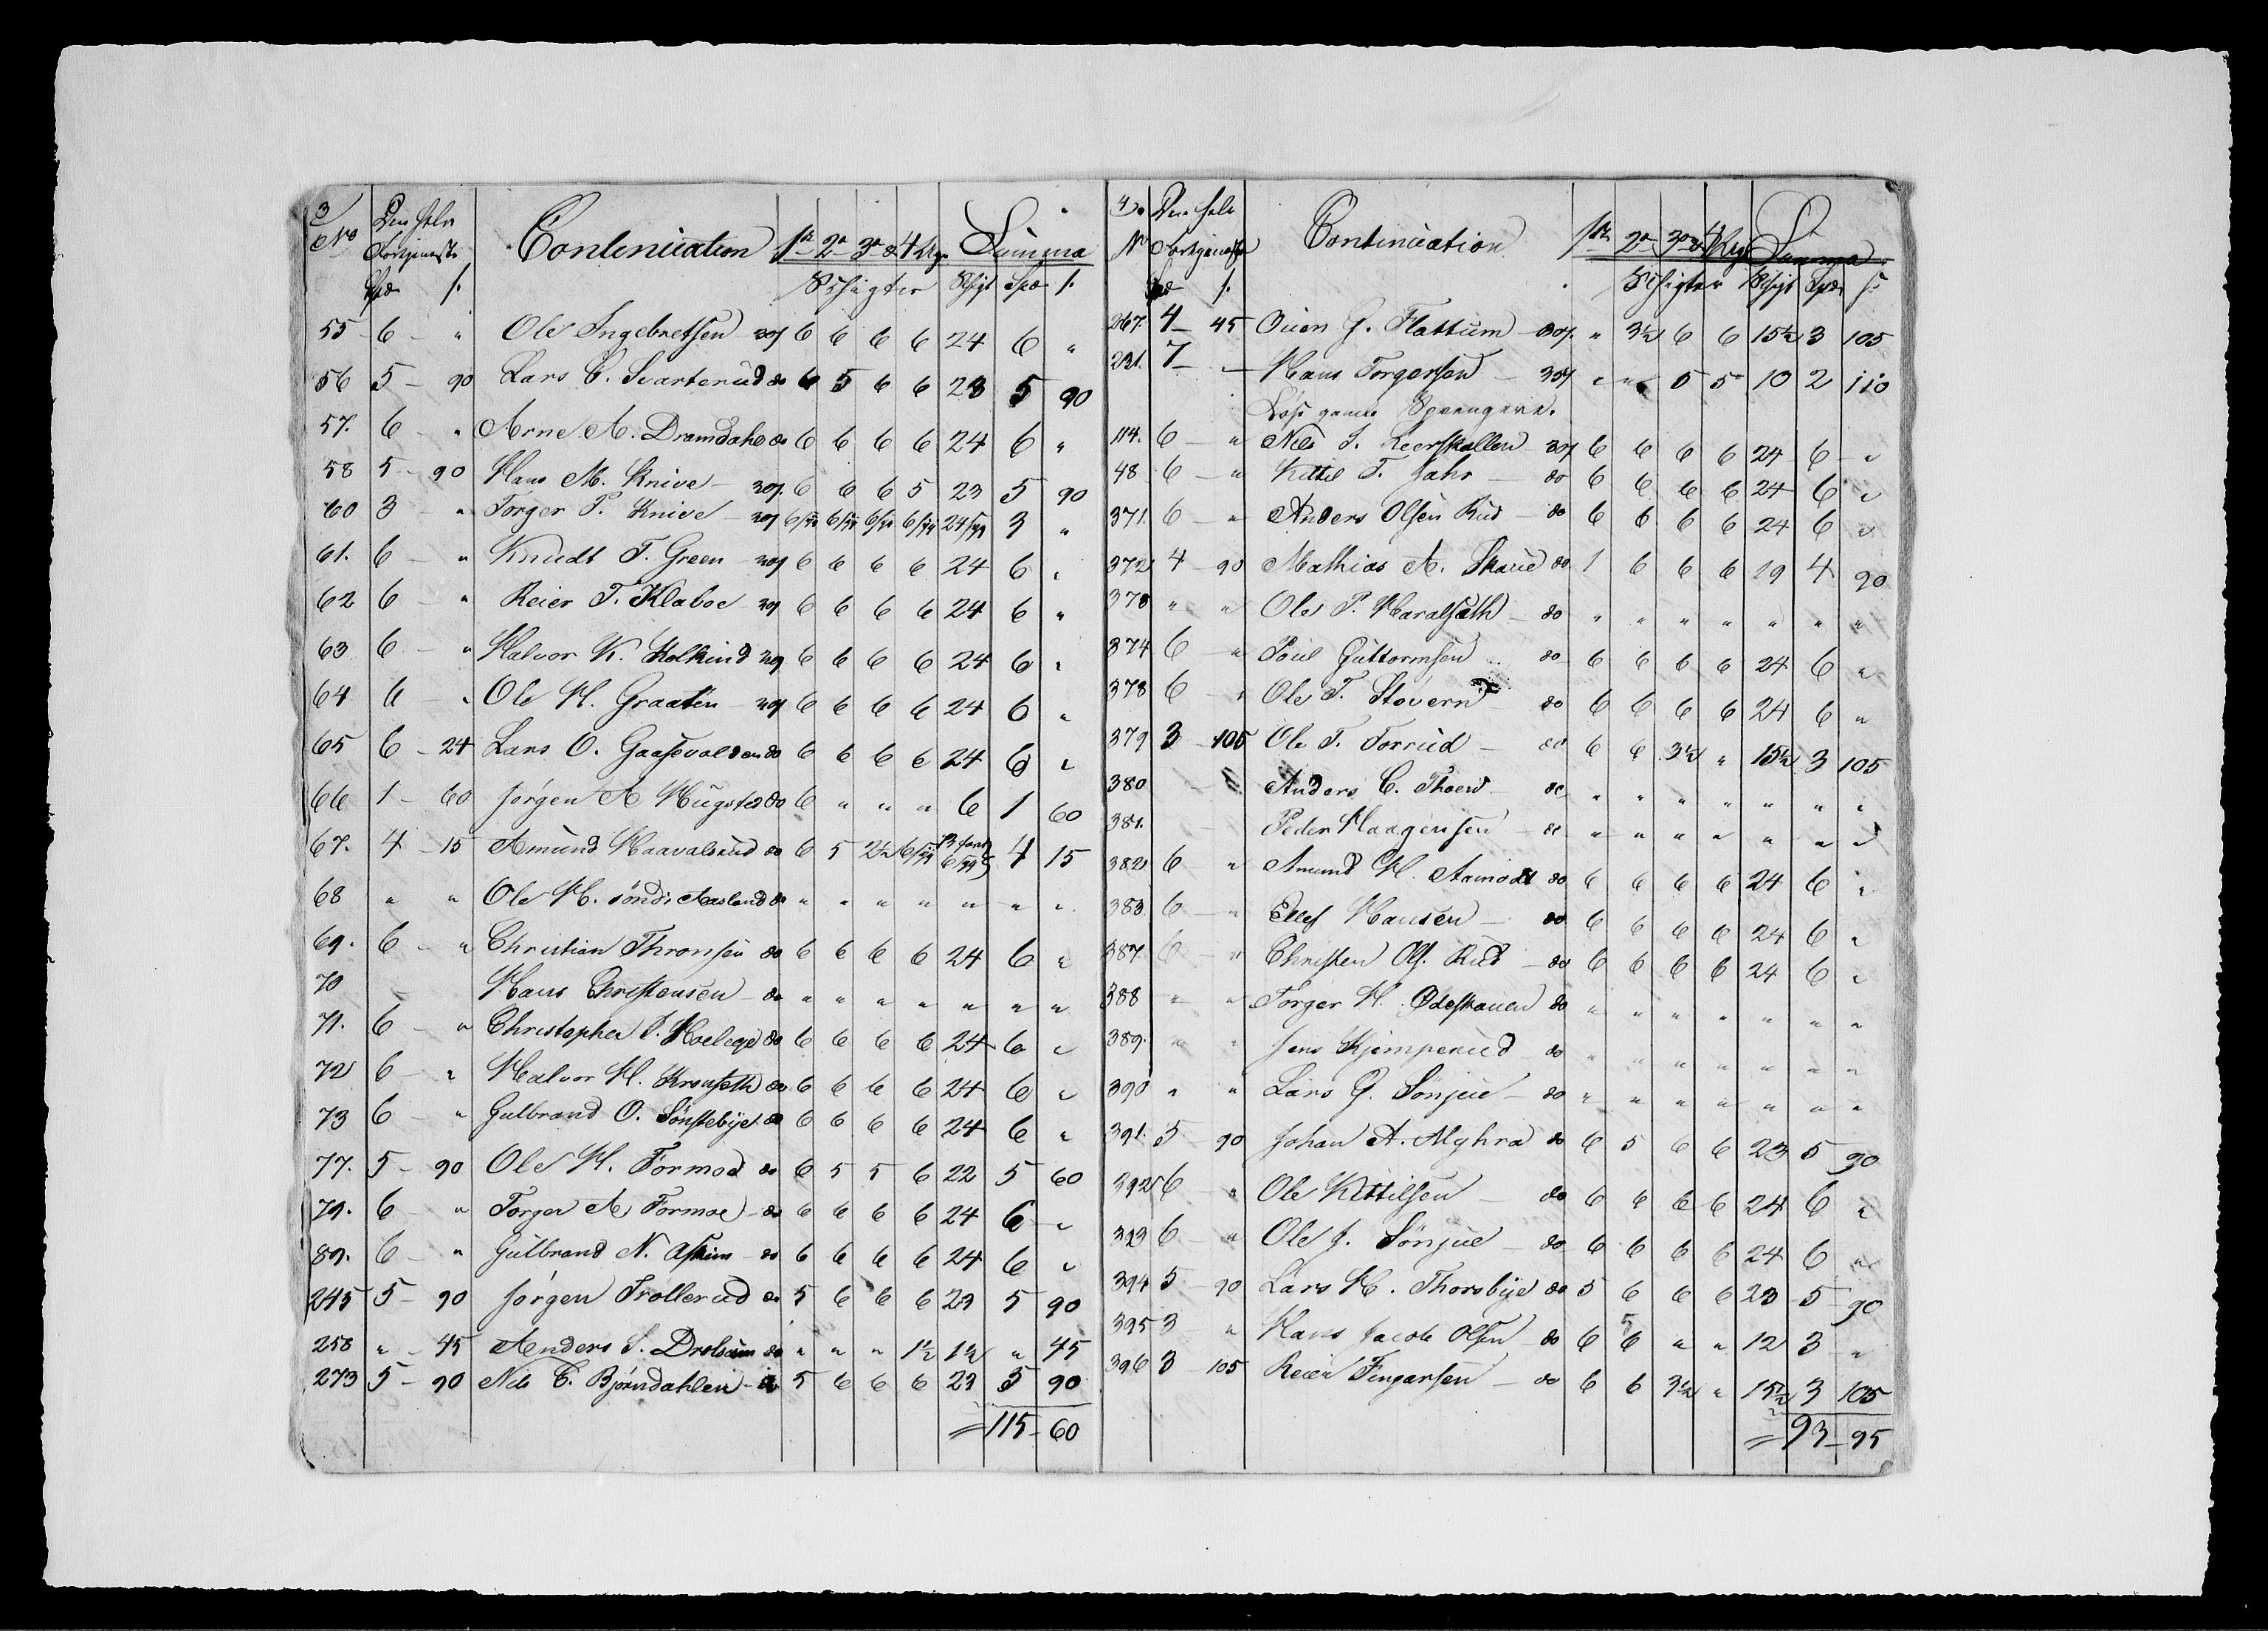 3
Den hele
No Fortjeneste Continuation 1ste 2n 3n & 4 Uge Summa
Spd. s. Schigter Schigt Spd s.
55 6 " Ole Ingebretsen 30s 6 6 6 6 24 6 "
56 5 - 90 Lars C. Svarterud do 6 5 6 6 23 5 90
57. 6 " Arne A. Dramdahl do 6 6 6 6 24 6 "
58 5 - 90 Hans M. Knive 30s. 6 6 6 5 23 5 90
60 3 " Torger P. Knive 3
61. 6 " Knudt T. Green 6 6 6 6 24 6 "
62 6 " Reier T. Klaboe 6 6 6 6 24 6 "
63 6 " Halvor K. Kolkind 6 6 6 6 24 6 "
64 6 " Ole H. Graaten 6 6 6 6 24 6 "
65 6 - 24 Lars O. Gaasevolden do 6 6 6 6 24 6 "
66 1 - 60 Jørgen A Hugsted do 6 " " " 6 1 60
67. 4 - 15 Amund Haavalsrud do 6 5 2½ 4 15
68 " " Ole H. søndr Aasland do " " " " " " "
69. 6 " Christian Thronsen do 6 6 6 6 24 6 "
70 Hans Christensen do " " " " " " "
71. 6 " Christopher P. Hoelege do 6 6 6 6 24 6 "
72 6 " Halvor H. Kronseth do 6 6 6 6 24 6 "
73 6 " Gulbrand O. Sønstebye do 6 6 6 6 24 6 "
77. 5 - 90 Ole H. Formoe do 6 5 5 6 22 5 60
79. 6 " Torger A Formoe do 6 6 6 6 24 6 "
89. 6 " Gulbrand N. Askim do 6 6 6 6 24 6 "
245 5 - 90 Jørgen Trollerud do 5 6 6 6 23 5 90
258 " - 45 Anders S. Drolsum do " " " 1½ 1½ " 45
273 5 - 90 Nils C. Bjørndahlen 5 6 6 6 23 5 90
= 115 - 60
4. Den hele
No Fortjeneste Continuation 1ste 2n 3n & 4 Uge Summa
Spd s. Schigter Schigt Spd. s.
267. 4 - 45 Ouen G. Flattum 30s. " 3½ 6 6 15½ 3 105
231. 7 - Hans Torgersen " " 5 5 10 2 110
Løse gaaende Sprengere.
114. 6 " Nils J. Leerskallen 30s 6 6 6 6 24 6 "
48 6 " Kittil T. Jahr do 6 6 6 6 24 6 "
371. 6 " Anders Olsen Rud do 6 6 6 6 24 6 "
372 4 - 90 Mathias A. Skarud do 1 6 6 6 19 4 90
373 " " Ole P. Haralsæth do " " " " " " "
374 6 " Poul Guttormsen do 6 6 6 6 24 6 "
378 6 " Ole T. Stovern do 6 6 6 6 24 6 "
379 3 - 105 Ole T. Forrud do 6 6 3½ " 15½ 3 105
380 Anders C. Thoen do " " " " " " "
381. Peder Haagensen do " " " " " " "
382 6 " Amund H. Aamodt do 6 6 6 6 24 6 "
383. 6 " Ellef Hansen do 6 6 6 6 24 6 "
387. 6 " Christen Ols. Rud do 6 6 6 6 24 6 "
388 " " Torger H. Ødeskauen do " " " " " " "
389. " " Jens Kjemperud do " " " " " " "
390 " " Lars G. Sønjue do " " " " " " "
391. 5 - 90 Johan A. Myhra do 6 5 6 6 23 5 90
392 6 " Ole Kittilsen do 6 6 6 6 24 6 "
393 6 " Ole J. Sønjue do 6 6 6 6 24 6 "
394 5 - 90 Lars H. Thorsbye do 5 6 6 6 23 5 90
395 3 " Hans Jacob Olsen do 6 6 " " 12 3 "
396 3 - 105 Reier Fingarsen do 6 6 3½ " 15½ 3 105
= 93 - 95